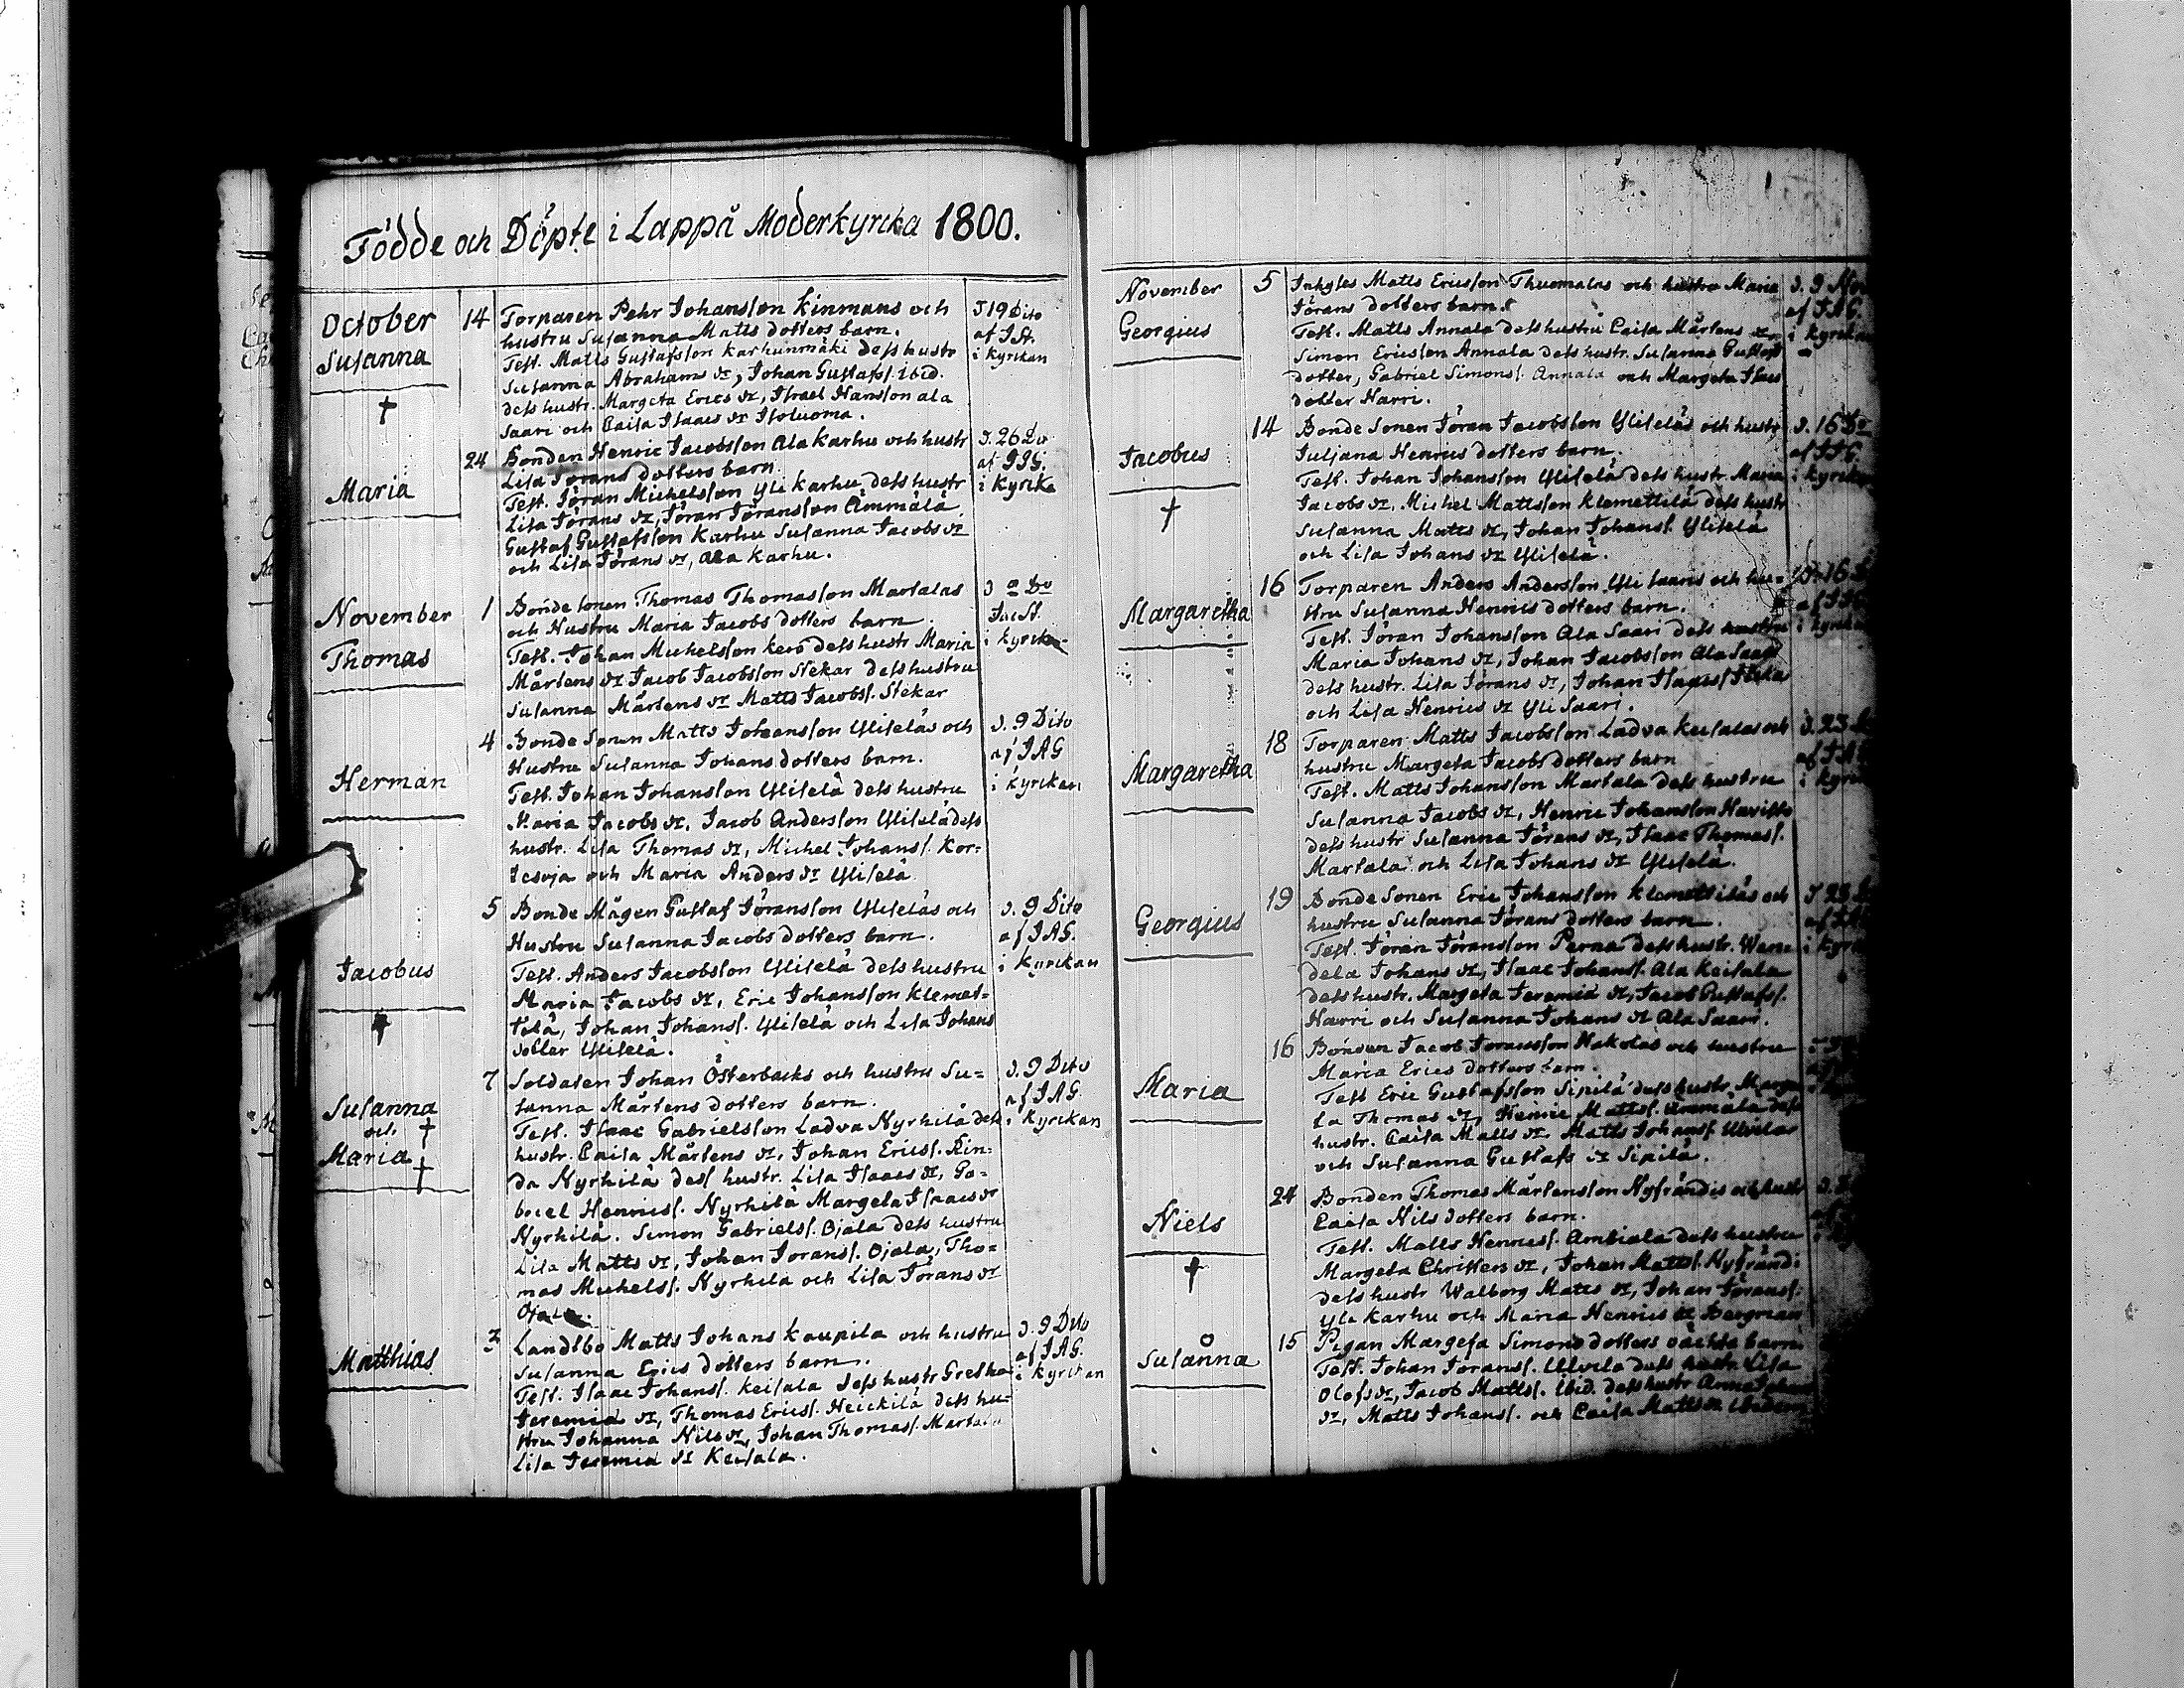 Födde och Döpte i Lappå Moderkyrcka 1800.
October
Susanna
†
14 Torparen Pehr Johansson Kinmans och
hustru Susanna Matts dotters barn.
Test. Matts Gustafsson Karhunmäki dess hustr
Susanna Abrahams dr, Johan Gustafss. ibid.
dess hustr. Margeta Erics dr, Israel Hansson ala
Saari och Caisa Isaacs dr Isoluoma.
d 19 Dito
af
i kyrckan
Maria
24 Bonden Henric Jacobsson Ala Karhu och hustr
Lisa Jörans dotters barn.
Test. Jöran Michelsson Yli Karhu dess hustr
Lisa Jörans dr, Jöran Jöransson Ämmälä,
Gustaf Gustafsson Karhu Susanna Jacobs dr
och Lisa Jörans dr, ala Karhu.
d. 26 Do
af
i kyrcka
November
Thomas
1 Bonde Sonen Thomas Thomasson Martalas
och Hustru Maria Jacobs dotters barn
Test. Johan Michelsson Kero dess hustr Maria
Mårtens dr Jacob Jacobsson Stekar dess hustru
Susanna Mårtens dr Matts Jacobs. Stekar
Do
i kyrckan
Herman
4 Bonde Sonen Matts Johansson Yliseläs och
Hustru Susanna Johans dotters barn.
Test. Johan Johansson Yliselä dess hustru
Maria Jacobs dr, Jacob Andersson Yliselä dess
hustr. Lisa Thomas dr, Michel Johanss. Kor=
tesoja och Maria Anders dr Yliselä
d. 9 Dito
af JAG
i kyrckan
Jacobus
†
5 Bonde Mågen Gustaf Jöransson Yliseläs och
Hustru Susanna Jacobs dotters barn.
Test. Anders Jacobsson Yliselä dess hustru
Maria Jacobs dr, Eric Johansson Klemet=
tilä, Johan Johanss. Yliselä och Lisa Johans
dotter Yliselä.
d. 9 Dito
af JAG.
i kyrckan
Susanna
och †
Maria †
7 Soldaten Johan Österbacks och hustru Su=
sanna Mårtens dotters barn.
Test. Isaac Gabrielsson Ladva Nyrhilä dess
hustr. Caisa Mårtens dr, Johan Ericss. Rin=
da Nyrhilä dess hustr. Lisa Isaacs dr, Ga=
briel Henricss. Nyrhilä Margeta Isaacs dr
Nyrhilä. Simon Gabrielss. Ojala dess hustru
Lisa Matts dr, Johan Jöranss. Ojala, Tho=
mas Michelss. Nyrhilä och Lisa Jörans dr
Ojala.
d. 9 Dito
af JAG.
i kyrckan
Matthias
Landtbo Matts Johans Kaupila och hustru
Susanna Erics dotters barn.
Test. Isaac Johanss. Keisala dess hustr Gretha
Jeremia dr, Thomas Ericss. Heickilä dess hu=
stru Johanna Nils dr, Johan Thomass. Martala
Lisa Jeremia dr Keisala.
d. 9 Dito
af JAG.
i kyrckan
November
Georgius
5 Inhyses Matts Ericsson Thuomalas och hustru Maria
Jörans dotters barn.
Test. Matts Annala dess hustru Caisa Mårtens dr
Simon Ericsson Annala dess hustr. Susanna Gustafs
dotter, Gabriel Simonss. Annala och Margeta Isacs
dotter Harri.
d. 9
af JAG.
i kyrckan
Jacobus
†
14 Bonde Sonen Jöran Jacobsson Yliseläs och hustr
Juljana Henrics dotters barn.
Test. Johan Johansson Yliselä dess hustr. Maria
Jacobs dr, Michel Mattsson Klemettilä dess hustr
Susanna Matts dr, Johan Johanss. Yliselä
och Lisa Johans dr Yliselä.
d. 16 Do
af
i kyrckan
Margaretha
16 Torparen Anders Andersson Yli Saaris och hu=
stru Susanna Henrics dotters barn.
Test. Jöran Johansson Ala Saari dess hustru
Maria Johans dr, Johan Jacobsson Ala Saari
dess hustr. Lisa Jörans dr, Johan Isaacss
och Lisa Henrics dr Yli Saari.
16
i kyrckan
Margaretha
18 Torparen Matts Jacobsson Ladva Keisalas och
hustru Margeta Jacobs dotters barn
Test. Matts Johansson Martala dess hustru
Susanna Jacobs dr, Henric Johansson Havisto
dess hustr Susanna Jörans dr, Isaac Thomass.
Martala och Lisa Johans dr Yliselä.
d. 23
af JA
i kyrc
Georgius
19 Bonde Sonen Eric Johansson Klemettiläs och
hustru Susanna Jörans dotters barn.
Test. Jöran Jöransson Perna dess hustr. Wen
dela Johans dr, Isaac Johanss. Ala Keisala
dess hustr. Margeta Jeremia dr, Jacob Gustafss.
Harri och Susanna Johans dr Ala Saari.
d 23
af
i kyrc
Maria
16 Bonden Jacob Jöransson Hakolas och hustru
Maria Erics dotters barn.
Test Eric Gustafsson Sipilä dess hustr. Marge
ta Thomas dr, Henric Mattss. Ämmälä dess
hustr. Caisa Matts dr Matts Johanss. Ulvilas
och Susanna Gustafs dr Sipilä.
Niels
†
24 Bonden Thomas Mårtensson Nyfrändis och hustr
Caisa Nils dotters barn.
Test. Matts Henricss. Ambiala dess hustru
Margeta Christers dr, Johan Mattss. Nyfränd:
dess hustr Walborg Matts dr, Johan Jöranss.
Yli Karhu och Maria Henrics dr Bergman
Susanna
15 Pigan Margeta Simons dotters oächta barn.
Test. Johan Jöranss. Ulvila dess hustr Lisa
Olofs dr, Jacob Mattss. ibid. dess hustr Anna
dr, Matts Johanss. och Caisa Matts dr